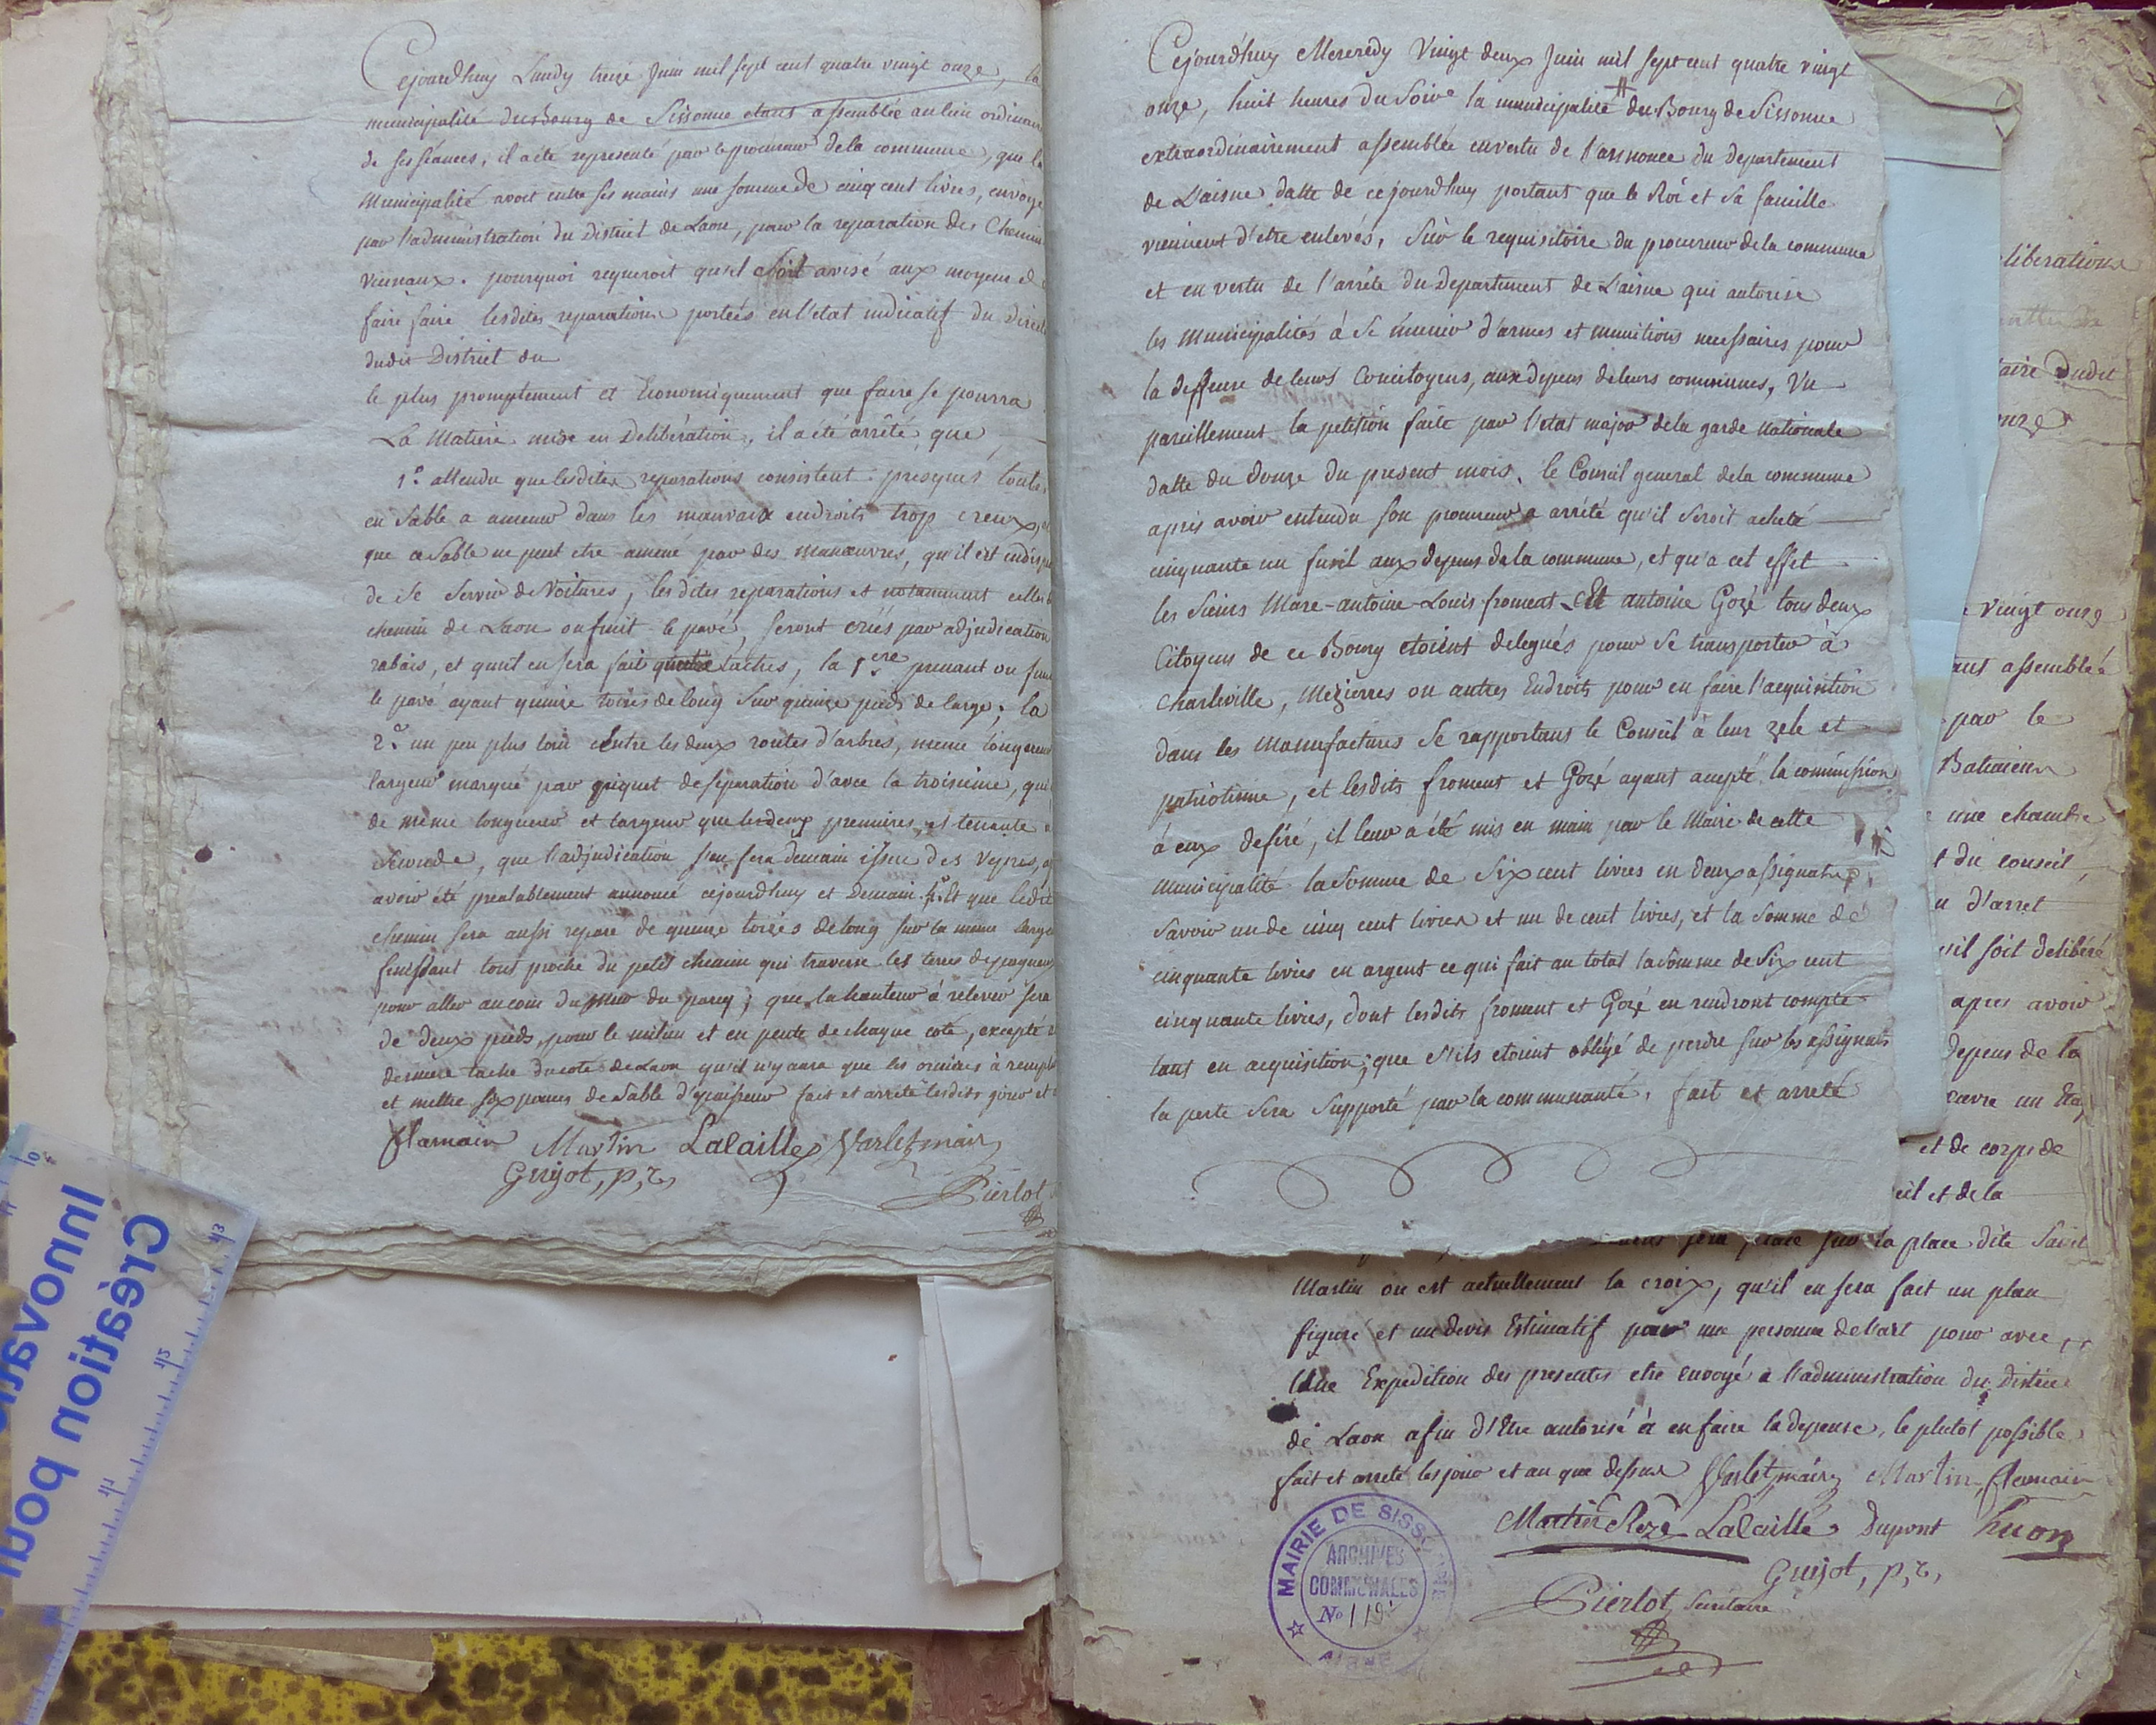 Cejourdhuy Lundy treize Juin mil sept cent quatre vingt onze, la
municipalité du Bourg de Sissonne etant assemblée au lieu ordinaire
de ses séances, il a été representé par le procureur de la commune, que la
Municipalité avoit entre ses mains une somme de cinq cent livres, envoyé
par l'administration du District de Laon, pour la reparation des Chemins
vicinaux. pourquoi requeroit qu'il soit avisé aux moyens de
faire faire lesdites reparations portées en l'etat indicatif du
dudit District du
le plus promptement et Economiquement que faire se pourra
La Matiere mise en Deliberation, il a été arrêté que
1.° attendu que lesdites reparations consistent presque toutes
en Sable a amener dans les mauvais endroits trop creux, et
que ce Sable ne peut etre amené par des manœuvres, qu'il est
de se servir de Voitures, lesdites reparations et notamment celles
chemin de Laon ou finit le pavé, seront criés par adjudication
rabais, et qu'il en sera fait quatre taches, la 1.ere prenant ou
le pavé ayant quinze toises de long sur quinze pieds de large; la
2.e un peu plus loin entre les deux routes d'arbres, meme longueur
largeur marqué par piquet de separation d'avec la troisieme, qui
de même longueur et largeur que les deux premieres, et tenante
seconde, que l'adjudication s'en fera demain issue des vepres,
avoir été prealablement annoncé cejourdhuy et Demain. Et que ledit
chemin sera aussi reparé de quinze toises de long sur la meme
finissant tout proche du petit chemin qui traverse les terres
pour aller au coin du mur du parcq; que la hauteur à relever sera
de deux pieds, pour le milieu et en pente de chaque coté, excepté
derniere tache du coté de Laon qu'il n'y aura que les ornieres à
et mettre six pouces de Sable d'epaisseur fait et arrêté lesdits jour et
flamain Martin Lacaille Varlet maire
Guyot, p, r,
Pierlot
Cejourd'huy Mercredy Vingt deux Juin mil sept cent quatre vingt
onze, huit heures du Soir la municipalité du Bourg de Sissonne
extraordinairement assemblée en vertu de l'annonce du departement
de L'aisne datte de cejourdhuy portant que le Roi et sa famille
viennent d'etre enlevés, Sur le requisitoire du procureur de la commune
et en vertu de l'arrêté du Departement de L'aisne qui autorise
les Municipalités à se munir d'armes et munitions necessaires pour
la deffense de leurs Concitoyens, aux depens de leurs communes, Vu
pareillement la petition faite par l'etat major de la garde Nationale
datte du douze du present mois, le Conseil general de la commune
après avoir entendu son procureur a arrêté qu'il seroit acheté
cinquante un fusil aux depens de la commune, et qu'a cet effet
les Sieurs Marc-antoine-Louis froment Et antoine Gozé tous deux
Citoyens de ce Bourg etoient delegués pour se transporter à
Charleville, Mézierres ou autres Endroits pour en faire l'acquisition
dans les Manufactures se rapportant le Conseil à leur zele et
patriotisme, et lesdits froment et Gozé ayant accepté la commission
à eux deferé, il leur a été mis en main par le Maire de cette
municipalité la Somme de Six cent livres en deux assignats,
savoir un de cinq cent livres et un de cent livres, et la Somme de
cinquante livres en argent ce qui fait au total la Somme de Six cent
cinquante livres, dont lesdits froment et Gozé en rendront compte
tant en acquisition; que s'ils etoient obligé de perdre sur les assignats
la perte sera supporté par la communauté, fait et arreté
liberations
aire dudit
onze
vingt onze
ant assemblée
par le
Batimens
une chambre
t du conseil,
u d'arret
'il soit deliberé
apres avoir
depens de la
et de corps de
eil et de la
sera placé sur la place dite Saint
Martin ou est actuellement la croix, qu'il en sera fait un plan
figuré et un devis Estimatif par une personne de l'art pour avec
Une Expedition des presentes etre envoyé a l'administration du District
de Laon afin d'Etre autorisé à en faire la depense, le plutot possible
fait et arreté les jour et an que dessus Varlet maire Martin flamain
Martin Rozé Lacaille Dupont huon
Guyot, p, r,
Pierlot Secretaire
MAIRIE DE SISSONNE
ARCHIVES
COMMUNALES
No 119
AISNE
Innovati
Création pour
10
11
12
13